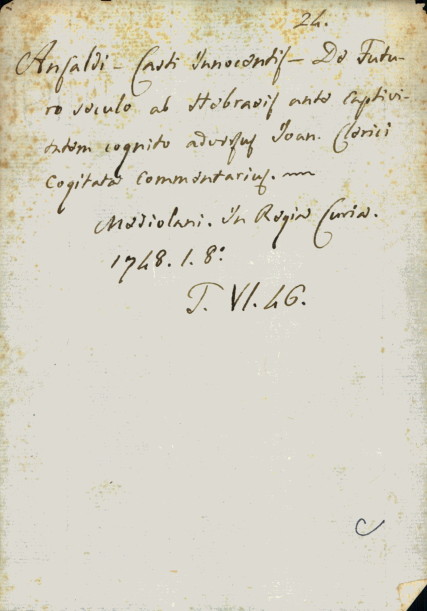 24.
Ansaldi - Casti Innocentis - De Futu-
ro sæculo ab Hebræis ante captivi-
tatem cognito adversus Joan. Clerici
Cogitata Commentarius. —
Mediolani. In Regia Curia.
1748. 1. 8º
T. VI. 46.
C